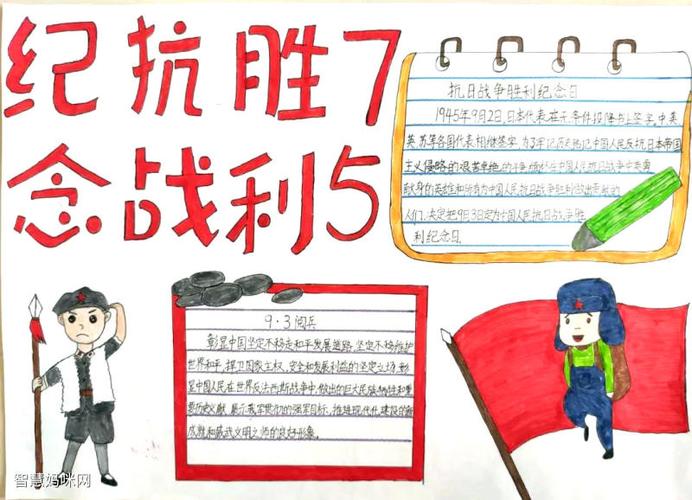 纪抗胜7
念战利5
抗日战争胜利纪念日
1945年9月2日,日本代表在无条件投降书上签字,中美
英苏等各国代表相继签字,为了牢记历史,铭记中国人民反抗日本帝国
主义侵略的艰苦卓绝的斗争 缅怀在中国人民抗日战争中英勇
献身的英雄和所有为中国人民抗日战争胜利做出贡献的
人们,决定把9月3日定为中国人民抗日战争胜
利纪念日.
9·3阅兵
彰显中国坚定不移走和平发展道路,坚定不移维护
世界和平,捍卫国家主权,安全和发展利益的坚定立场,彰
显中国人民在世界反法西斯战争中,做出的巨大民族牺牲和重
要历史贡献,展示我军 的强军目标,推进现代化建设的新
成就和威武文明之师的良好形象。
智慧妈咪网